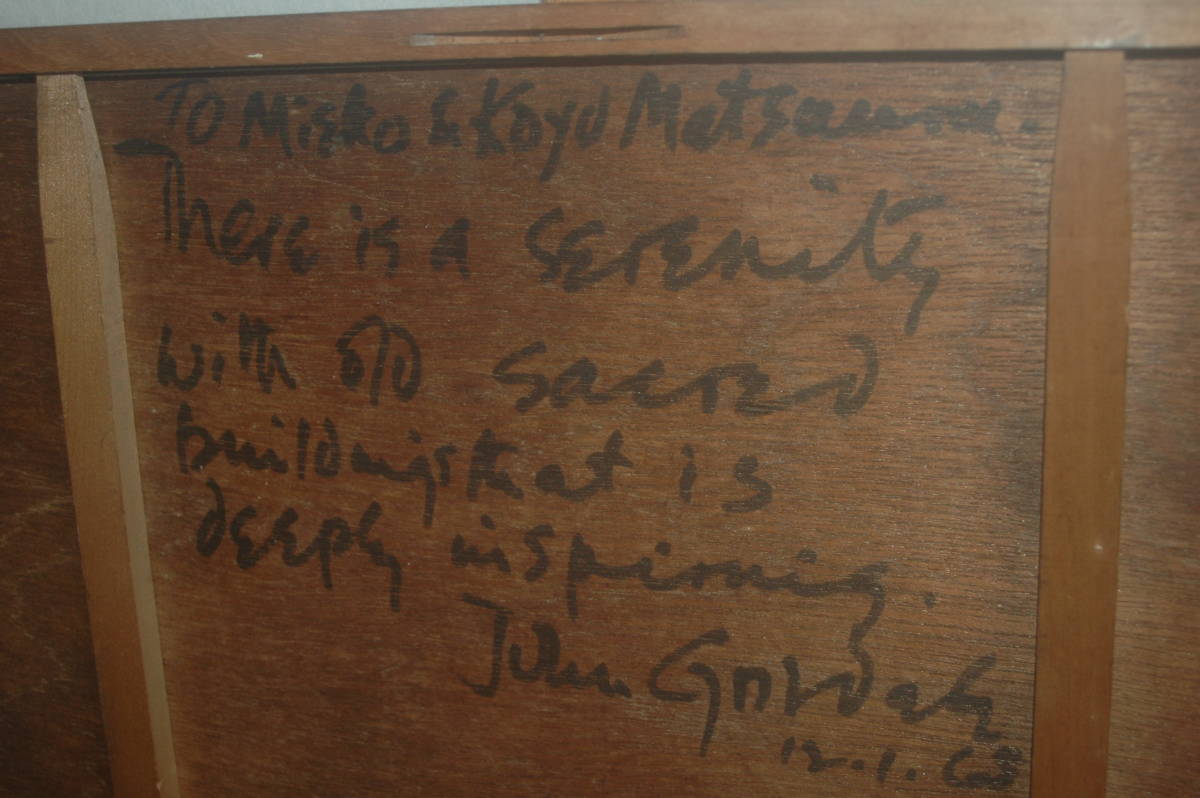 To Mieko & Koyo Matsaurra.
There is a serenity
with old sacred
buildings that is
deeply inspiring.
John
12.1.68